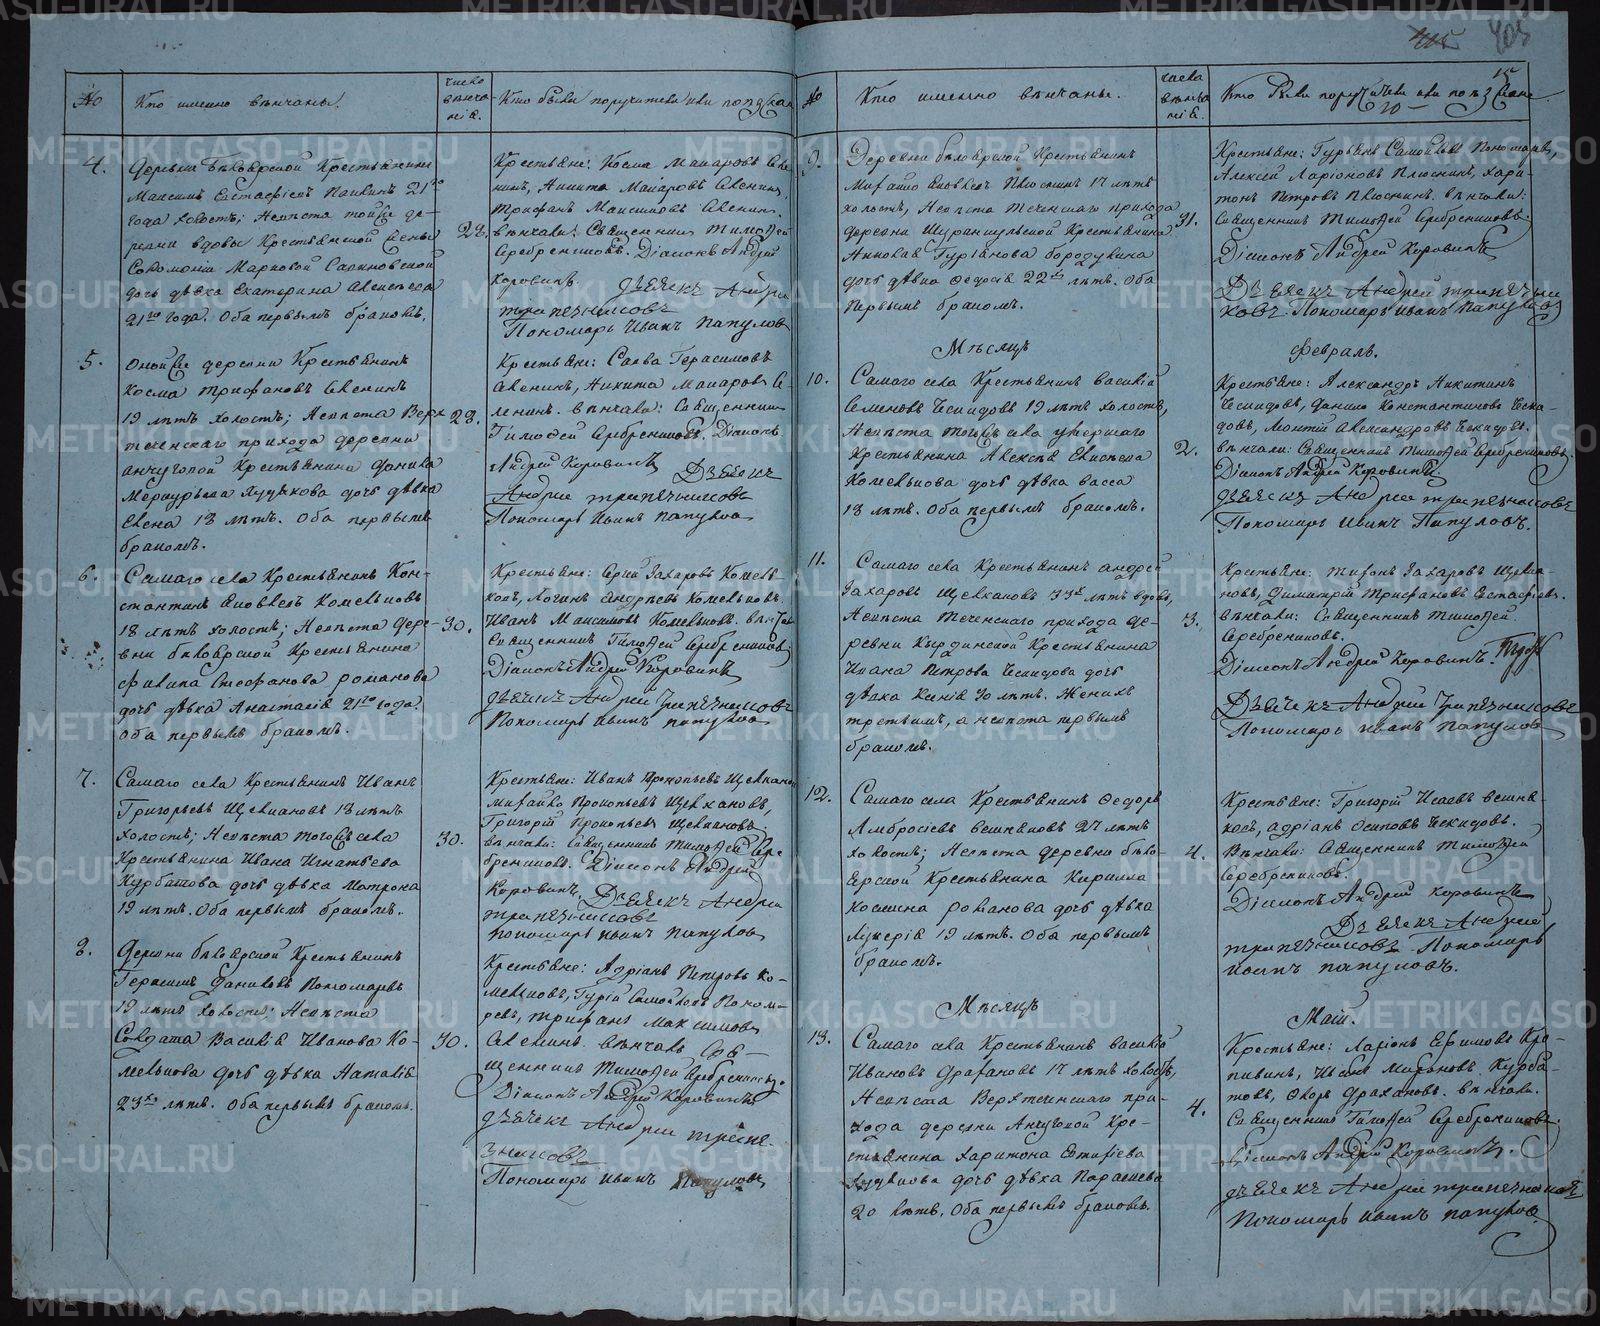 №
Кто именно вѣнчаны.
число вѣнчанія.
Кто были поручители или поѣзжан
4. Деревни Бѣлоярской Крестьянинъ
Максимъ Евстафіевъ 21го
года холостъ; Невѣста той же де-
ревни вдовы Крестьянской жены
Соломоніи Марковой
дочь дѣвка Екатерина Алексѣева
21го года. Оба первымъ бракомъ.
Крестьяне: Косма Макаровъ
Никита Макаровъ
Трифанъ Максимовъ
28.
вѣнчалъ: Священникъ Тимофей
Серебренниковъ. Діаконъ Андрей
Коровинъ. Дьячекъ Андрей
трапезниковъ
Пономарь Иванъ Папуловъ
5. оной же деревни Крестьянинъ
Косма Трифановъ
19 лѣтъ холостъ; Невѣста Верх
теченскаго прихода деревни
анчуговой Крестьянина Данила
Меркурьева Худякова дочь дѣвка
Елена 18 лѣтъ. Оба первымъ
бракомъ.
28.
Крестьяне: Савва Герасимовъ
Никита Макаровъ
вѣнчалъ: Священникъ
Тимофей Серебренниковъ. Діаконъ
Андрей Коровинъ Дьячекъ
Андрей трапезниковъ
Пономарь Иванъ Папуловъ
6. Самаго села Крестьянинъ Кон-
стантинъ Яковлевъ Комельковъ
18 лѣтъ холостъ; Невѣста дере-
вни бѣлоярской Крестьянина
Филипа Стефанова Романова
дочь дѣвка Анастасія 21го года.
Оба первымъ бракомъ.
30.
Крестьяне: Сергій Захаровъ Комель-
ковъ, Логинъ Андреевъ Комельковъ,
Иванъ Максимовъ Комельковъ. вѣнчалъ
Священникъ Тимофей Серебренниковъ
Діаконъ Андрей Коровинъ
дьячекъ Андрей Трапезниковъ
Пономарь Иванъ папуловъ
7. Самаго села Крестьянинъ Иванъ
Григорьевъ Щелкановъ 18 лѣтъ
холостъ; Невѣста того же села
Крестьянина Ивана Игнатьева
Курбатова дочь дѣвка Матрона
19 лѣтъ. Оба первымъ бракомъ.
30.
Крестьяне: Иванъ Прокопьевъ Щелкановъ
Михайло Прокопьевъ Щелкановъ,
Григорій Прокопьевъ Щелкановъ.
вѣнчалъ: Священникъ Тимофей Сере-
бренниковъ. Діаконъ Андрей
Коровинъ. Дьячекъ Андрей
трапезниковъ
пономарь Иванъ папуловъ
8. Деревни бѣлоярской Крестьянинъ
Герасимъ Даниловъ Пономаревъ
19 лѣтъ холостъ; Невѣста
Солдата Василія Иванова Ко-
мелькова дочь дѣвка Наталія
23хъ лѣтъ. Оба первымъ бракомъ.
30.
Крестьяне: Адріанъ Петровъ Ко-
мельковъ, Гурій Самойловъ Понома-
ревъ, Трифанъ Максимовъ
вѣнчалъ Свя-
щенникъ Тимофей Серебренниковъ.
Діаконъ Андрей Коровинъ
дьячекъ Андрей трапе-
зниковъ
Пономарь Иванъ Папуловъ
405
15
№
Кто именно вѣнчаны.
числа вѣнчанія.
Кто были поручители или поѣзжане
9. Деревни бѣлоярской Крестьянинъ
Михайло Яковлевъ Плюснинъ 17 лѣтъ
холостъ, Невѣста Теченскаго прихода
деревни Крестьянина
Гурьянова бородулина
дочь дѣвка Федосія 22хъ лѣтъ. Оба
Первымъ бракомъ.
31.
Крестьяне: Гурьянъ Самойловъ Пономаревъ,
Алексѣй Ларіоновъ Плюснинъ, Хари-
тонъ Петровъ Плюснинъ. вѣнчали:
Священникъ Тимофей Серебренниковъ.
Діаконъ Андрей Коровинъ
Дьячекъ Андрей трапезни
ковъ. Пономарь Иванъ Папуловъ
Мѣсяцъ
Февраль.
10. Самаго села Крестьянинъ Василій
Семеновъ Чекидовъ 19 лѣтъ холостъ,
Невѣста того же села умершаго
Крестьянина Алексѣя
Комелькова дочь дѣвка Васса
18 лѣтъ. Оба первымъ бракомъ.
2.
Крестьяне: Александръ Никитинъ
Чекидовъ, Данило Константиновъ Чеки-
довъ, Александровъ Чекидовъ.
вѣнчали: Священникъ Тимофей Серебренниковъ.
Діаконъ Андрей Коровинъ.
дьячекъ Андрей трапезниковъ
Пономарь Иванъ Папуловъ.
11. Самаго села Крестьянинъ Андрей
Захаровъ Щелкановъ 33хъ лѣтъ вдовъ,
Невѣста Теченскаго прихода де-
ревни Кирдинской Крестьянина
Ивана Петрова Чекидова дочь
дѣвка Ксенія 30 лѣтъ. Женихъ
третьимъ, а невѣста первымъ
бракомъ.
3.
Крестьяне: Тихонъ Захаровъ Щелка-
новъ, Димитрій Трифановъ Евстафіевъ.
вѣнчали: Священникъ Тимофей
Серебренниковъ.
Діаконъ Андрей Коровинъ.
Дьячекъ Андрей Трапезниковъ
Пономарь Иванъ Папуловъ
12. Самаго села Крестьянинъ Федоръ
Амбросіевъ вешняковъ 27 лѣтъ
холостъ; Невѣста деревни бѣло-
ярской Крестьянина Кирилла
Космина Романова дочь дѣвка
Лукерія 19 лѣтъ. Оба первымъ
бракомъ.
4.
Крестьяне: Григорій Исаевъ вешня-
ковъ, Адріанъ Осиповъ Чекидовъ.
Вѣнчали: Священникъ Тимофей
Серебренниковъ.
Діаконъ Андрей Коровинъ
Дьячекъ Андрей
трапезниковъ Пономарь
Иванъ папуловъ.
Мѣсяцъ
Май.
13. Самаго села Крестьянинъ Василій
Ивановъ Драхановъ 17 лѣтъ холостъ,
Невѣста Верхтеченскаго при-
хода деревни Анчуговой Кре-
стьянина Харитона Евтифіева
Худякова дочь дѣвка Параскева
20 лѣтъ. Оба первымъ бракомъ.
4.
Крестьяне: Ларіонъ Ефимовъ Кро-
пивинъ, Иванъ Мироновъ Курба-
товъ, Драхановъ. вѣнчали.
Священникъ Тимофей Серебренниковъ.
Діаконъ Андрей Коровинъ.
дьячекъ Андрей трапезниковъ
Пономарь Иванъ папуловъ.
METRIKI.GASO-URAL.RU